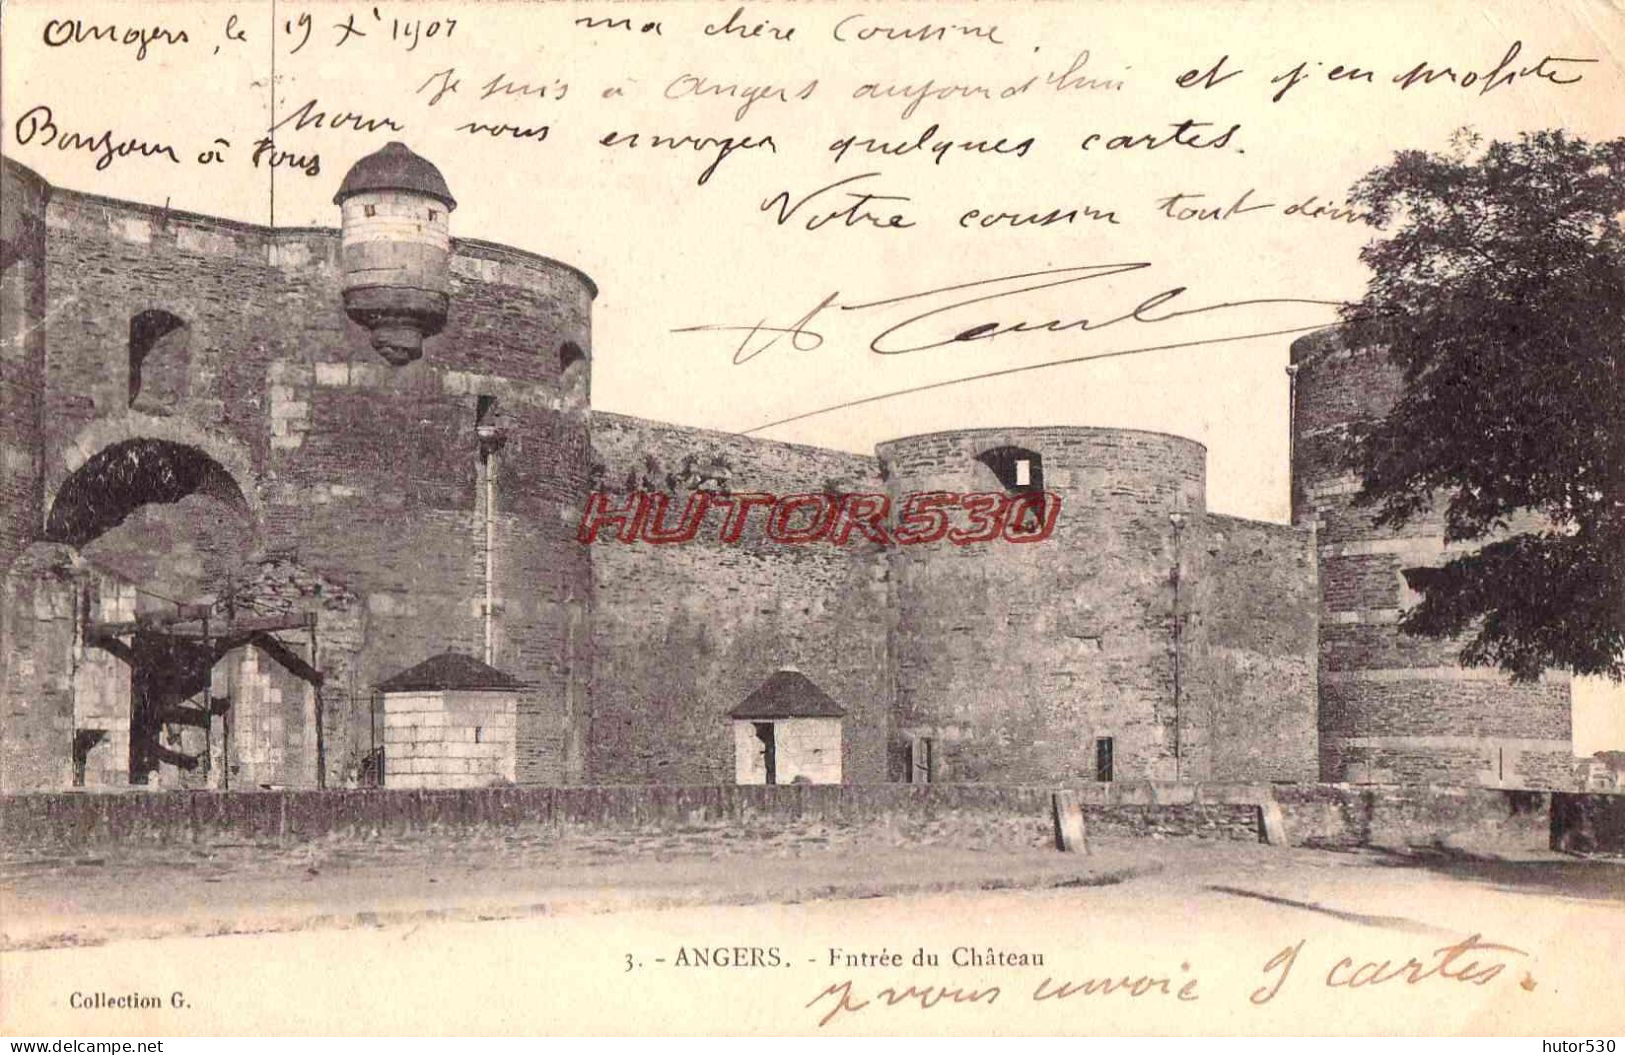 Angers, le 19 Xe 1907 ma chère Cousine.
Je suis à Angers aujourd'hui et j'en profite
pour vous envoyer quelques cartes.
Bonjour à tous
Votre cousin tout dévoué
HUTOR530
3. - ANGERS. - Entrée du Château
Je vous envoie 9 cartes.
Collection G.
delcampe.net
hutor530